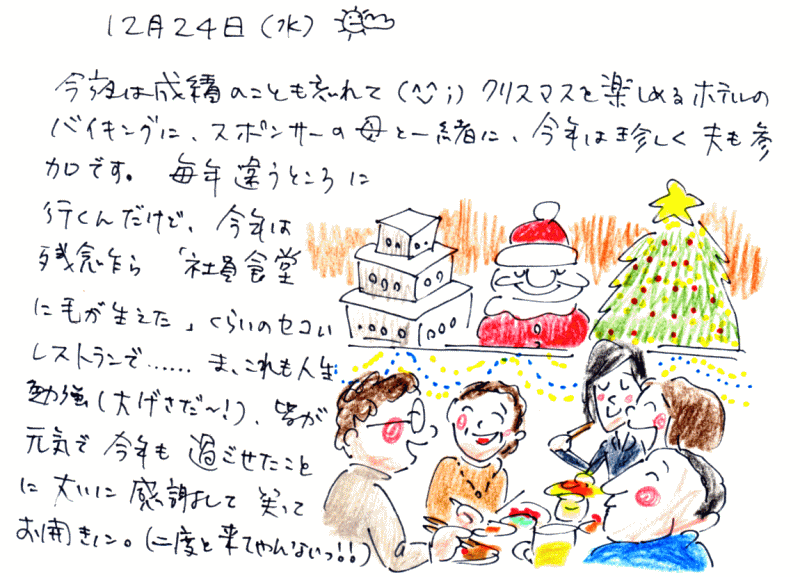 12月24日(水)
今夜は成績のことも忘れて(^^;)クリスマスを楽しめるホテルの
バイキングに、スポンサーの母と一緒に、今年は珍しく夫も参
加です。毎年違うところに
行くんだけど、今年は
残念乍ら「社員食堂
に毛が生えた」くらいのセコい
レストランで……ま、これも人生
勉強(大げさだ〜!)、皆が
元気で今年も過ごせたこと
に大いに感謝して笑って
お開きに。(二度と来てやんないっ!!)